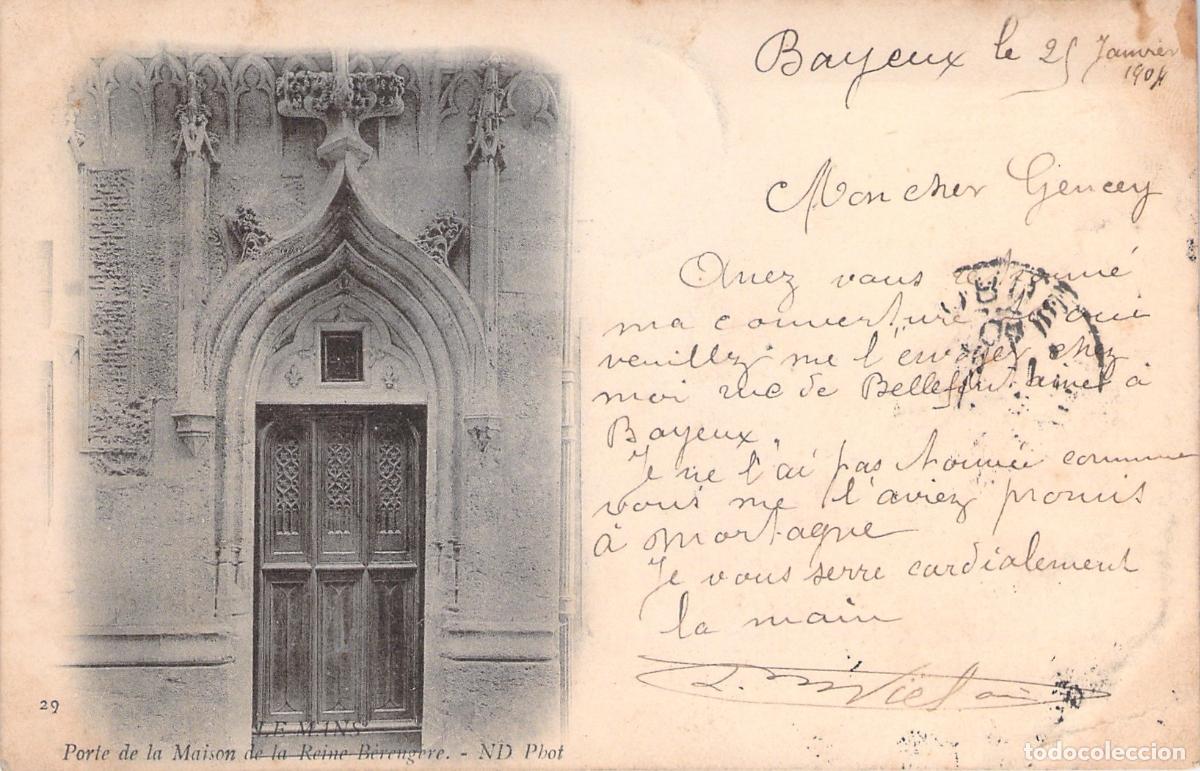 Bayeux le 25 Janvier
1904
Mon cher Gencey
Avez vous retrouvé
ma couverture si oui
veuillez me l'envoyer chez
moi rue de Bellefontaine à
Bayeux.
Je ne l'ai pas trouvée comme
vous me l'aviez promis
à Mortagne
Je vous serre cordialement
la main
29
LE MANS
Porte de la Maison de la Reine Bérengère. - ND Phot
todocoleccion